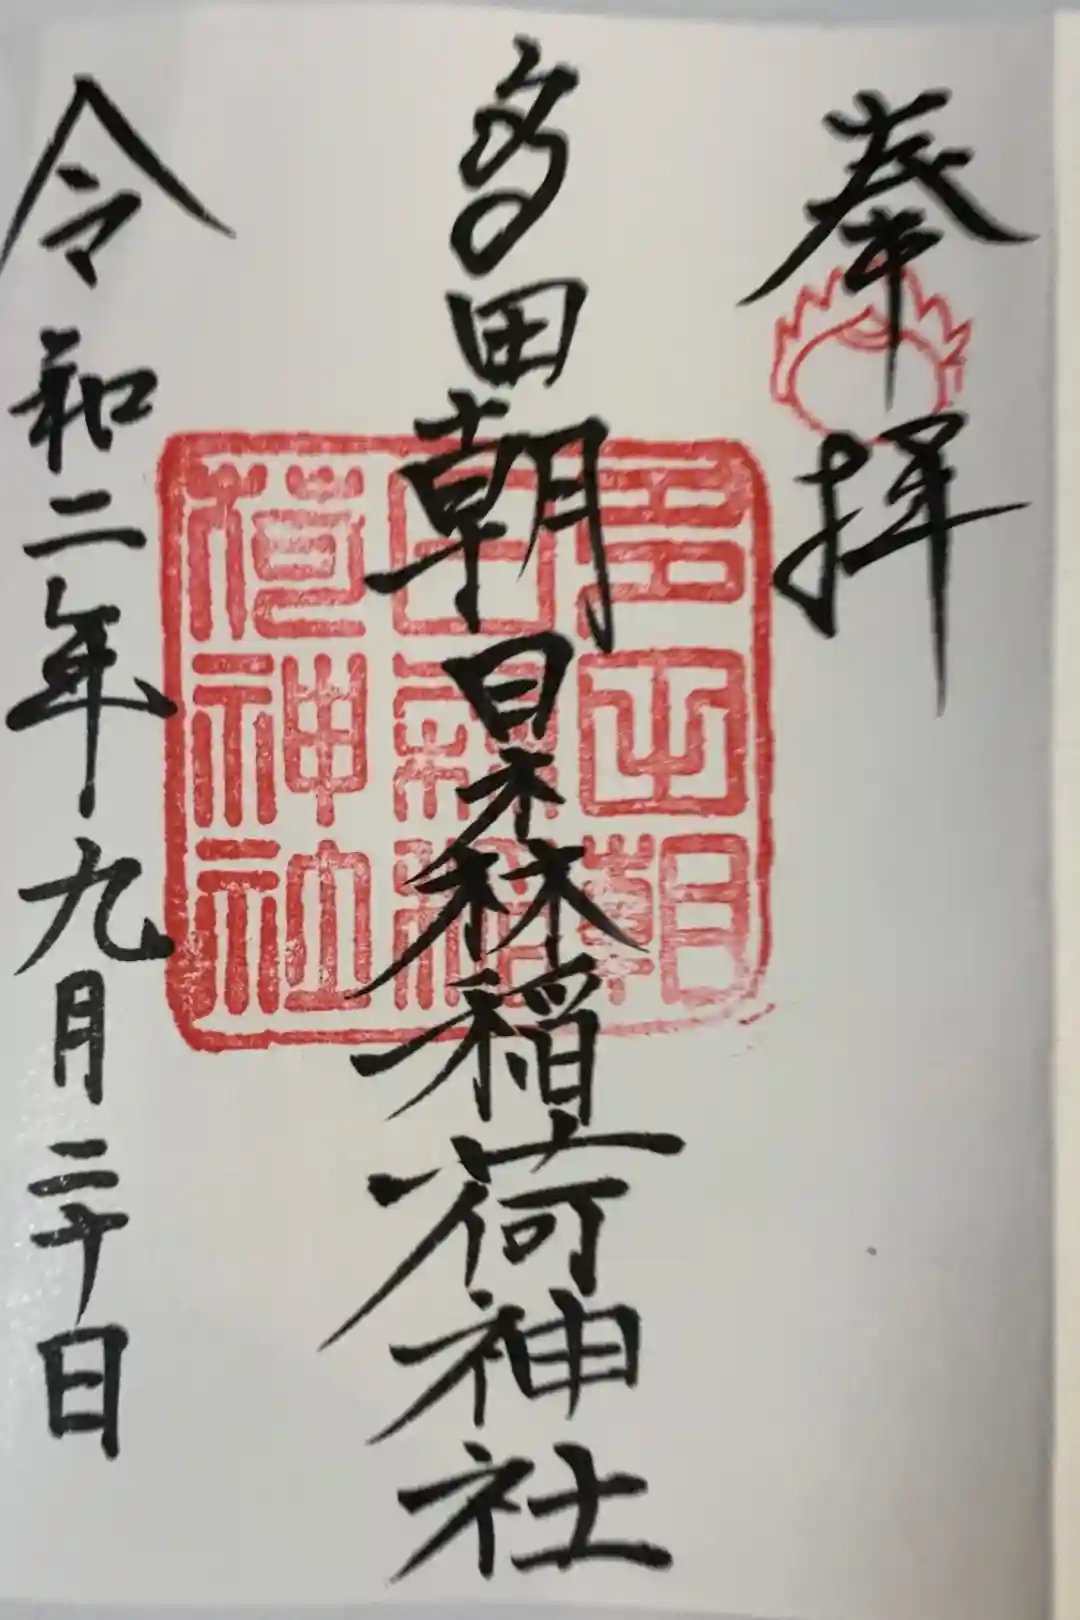 奉拝
多田朝日森稲荷神社
多田朝
日森稲
荷神社
令和二年九月二十日